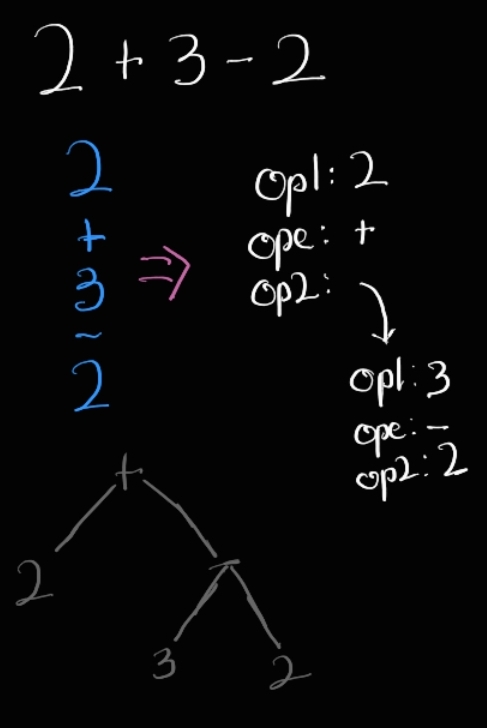 2 + 3 - 2
2
+
3
-
2
⇒
op1: 2
ope: +
op2:
op1: 3
ope: -
op2: 2
+
2
-
3 2